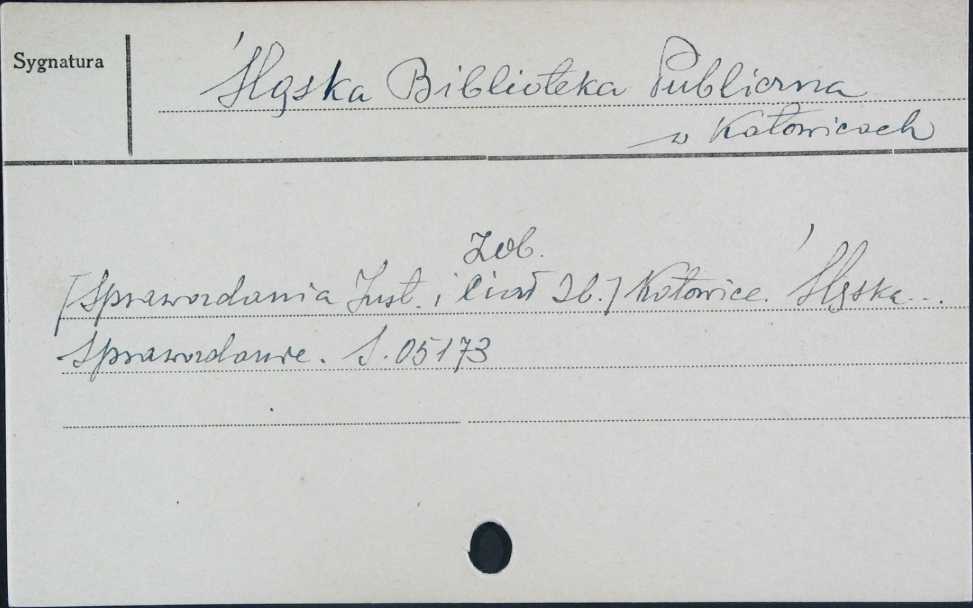 Sygnatura
Śląska Biblioteka Publiczna
w Katowicach
Zob.
[Sprawozdania Inst. i Ciał Zb.] Katowice. Śląska...
Sprawozdanie. S. 05173